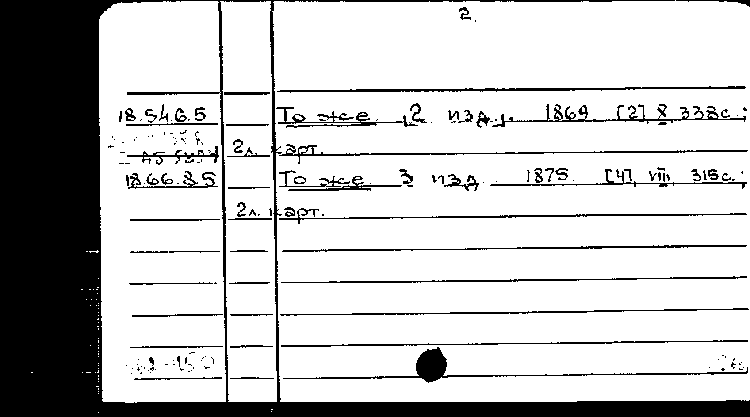 2.
18.54.6.5 То же, 2 изд., 1869. [2], X, 338с.;
2л. карт.
18.66.8.5 То же. 3 изд. 1875. [4], VIII, 315с.;
2л. карт.